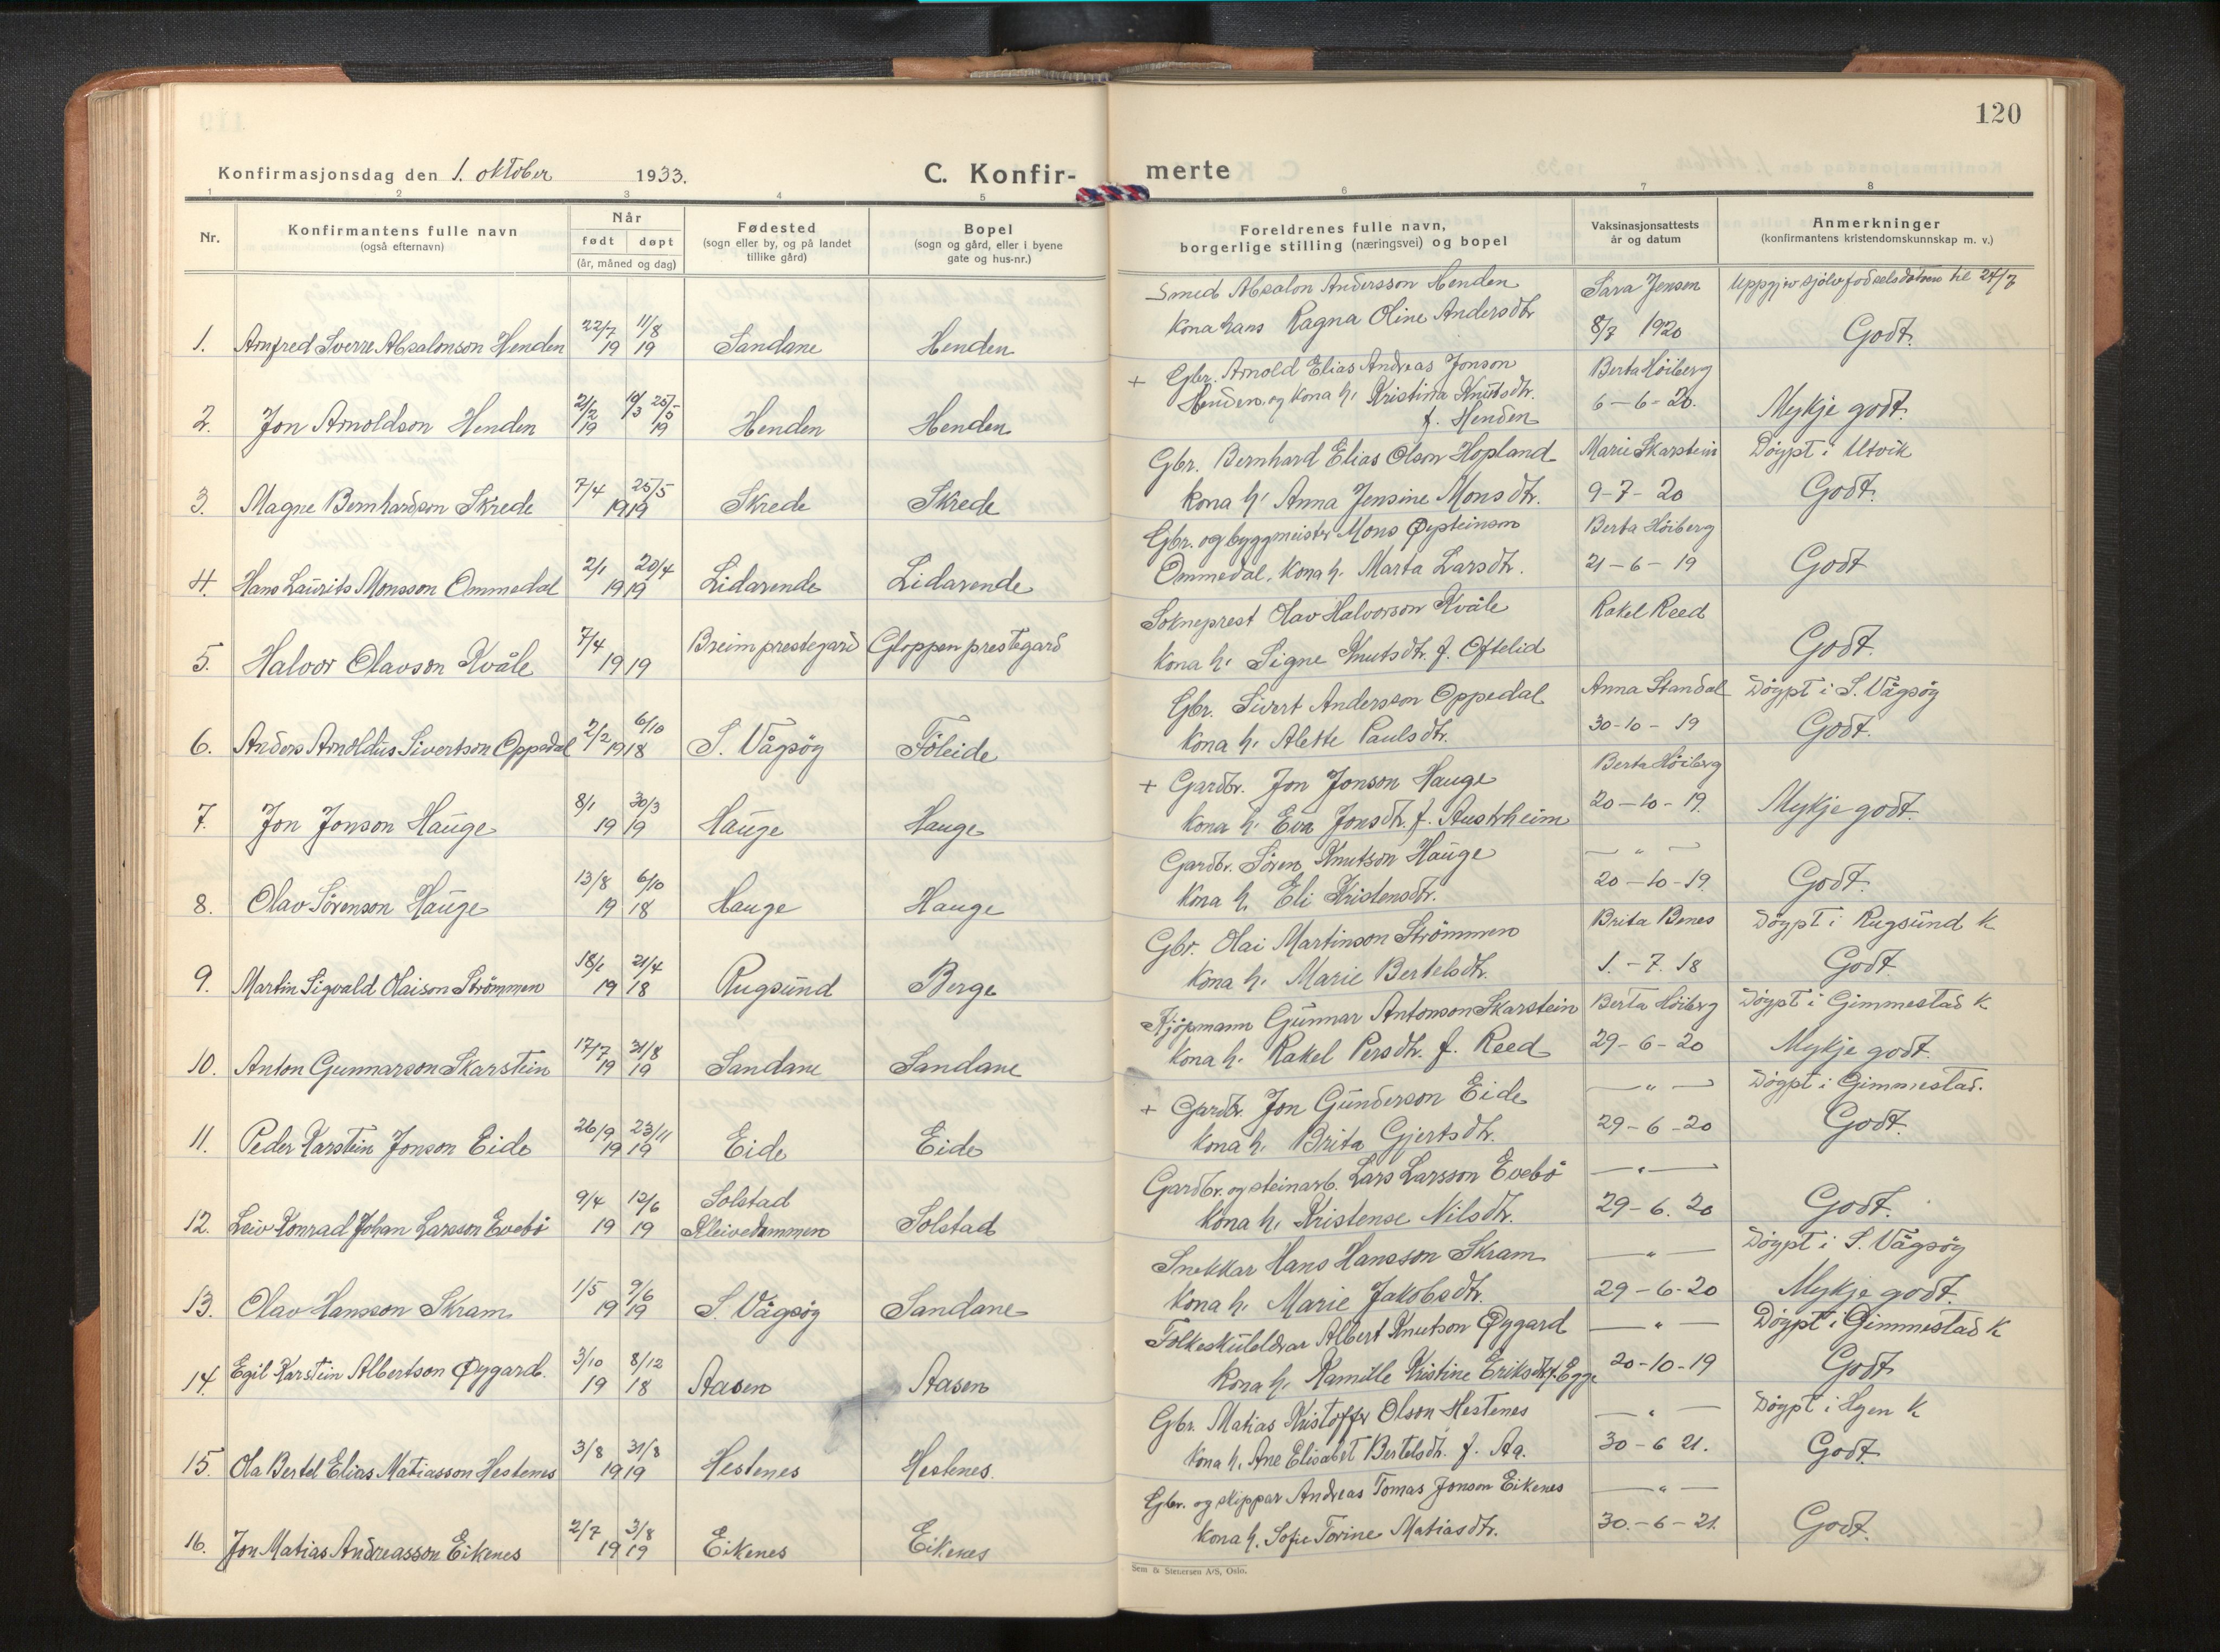 120
Konfirmasjonsdag den 1. oktober 1933.
C. Konfir-
merte
1 2 3 4 5 6 7 8
Nr.
Konfirmantens fulle navn
(også efternavn)
Når
født døpt
(år, måned og dag)
Fødested
(sogn eller by, og på landet
tillike gård)
Bopel
(sogn og gård, eller i byene
gate og hus-nr.)
Foreldrenes fulle navn,
borgerlige stilling (næringsvei) og bopel
Vaksinasjonsattests
år og datum
Anmerkninger
(konfirmantens kristendomskunnskap m. v.)
Smed Absalon Andersson Henden Sara Jensen Uppgjev sjølv fødselsdatoen til 24/7
Kona hans Ragna Oline Andersdtr 8/7 1920
22/7 11/8
1. Arnfred Sverre Absalonson Henden 19 19 Sandane Henden Godt.
+ Gbr. Arnold Elias Andreas Jonson Berta Höiberg
Henden, og kona h. Kristina Knutsdtr. 6-6-20.
f. Henden
25/5
2. Jon Arnoldson Henden 19 19 Henden Henden Mykje godt.
Gbr. Bernhard Elias Olson Hopland Marie Skarstein Döypt i Utvik
7/4 25/5
3. Magne Bernhardson Skrede 19 19 Skrede Skrede Kona h. Anna Jensine Monsdtr. 9-7-20 Godt.
Gbr. og byggmeister Mons Øysteinson Berta Höiberg
2/1 20/4
4. Hans Laurits Monsson Ommedal 19 19 Lidarende Lidarende Ommedal. Kona h. Marta Larsdtr. 21-6-19 Godt
Sokneprest Olav Halvorson Kvåle Rakel Reed
7/4
5. Halvor Olavson Kvåle 19 19 Breim prestegard Gloppen prestegard Kona h. Signe Knutsdtr. f. Oftelid Godt.
Gbr. Sivert Andersson Oppedal Anna Standal Döypt i S. Vågsöy
2/2 6/10
6. Anders Arnoldus Sivertson Oppedal 19 18 S. Vågsöy Föleide Kona h. Alette Paulsdtr. 30-10-19 Godt.
+ Gardbr. Jon Jonson Hauge Berta Höiberg
8/1 30/3
7. Jon Jonson Hauge 19 19 Hauge Hauge Kona h. Eva Jonsdtr. f. Austrheim 20-10-19. Mykje godt.
Gardbr. Sören Knutson Hauge — " —
13/8 6/10
8. Olav Sörenson Hauge 19 18 Hauge Hauge Kona h. Eli Kristensdtr. 20-10-19. Godt.
Gbr. Olai Martinson Strömmen Brita Benes Döypt i Rugsund K
18/2 21/4
9. Martin Sigvald Olaison Strömmen 19 18 Rugsund Berge Kona h. Marie Bertelsdtr. 1.-7.18 Godt
Kjöpmann Gunnar Antonson Skarstein Berta Höiberg Döypt i Gimmestad K
17/7 31/8
10. Anton Gunnarson Skarstein 19 19 Sandane Sandane Kona h. Rakel Persdtr. f. Reed 29-6-20 Mykje godt.
+ Gardbr. Jon Gunderson Eide — " — Döypt i Gimmestad.
26/9 23/11
11. Peder Karstein Jonson Eide 19 19 Eide Eide Kona h. Brita Gjertsdtr. 29-6-20 Godt.
Gardbr. og steinarb. Lars Larsson Evebö — " —
9/4 12/6 Solstad
12. Leiv Konrad Johan Larsson Evebö 19 19 Kleivedammen Solstad Kona h. Kristense Nilsdtr. 29-6.20 Godt.
Snekkar Hans Hansson Skram — " — Döypt i S. Vågsöy
1/5 9/6
13. Olav Hansson Skram 19 19 S. Vågsöy Sandane Kona h. Marie Jakobsdtr. 29-6-20 Mykje godt.
Folkeskulelærar Albert Knutson Øygard — " — Döypt i Gimmestad K
3/10 8/12
14. Egil Karstein Albertson Øygard. 19 18 Aasen Aasen Kona h. Kamille Kristine Eriksdtr. f. Egge 20-10-19 Godt
Gbr. Matias Kristoffer Olson Hestenes — " — Döypt i Hyen K
3/8 31/8
15. Ola Bertel Elias Matiasson Hestenes 19 19 Hestenes Hestenes. Kona h. Ane Elisabet Bertelsdtr. f. Aa. 30-6 21. Godt
Gbr. og skippar Andreas Tomas Jonson Eikenes — " —
2/7 3/8
16. Jon Matias Andreasson Eikenes 19 19 Eikenes Eikenes Kona h. Sofie Torine Matiasdtr. 30.-6-21. Godt.
Sem & Stenersen A/S, Oslo.